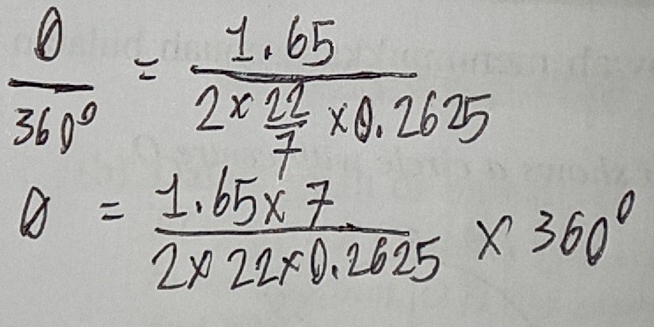 θ/360° = 1.65/(2 × 22/7 × 0.2625)
θ = (1.65 × 7)/(2 × 22 × 0.2625) × 360°